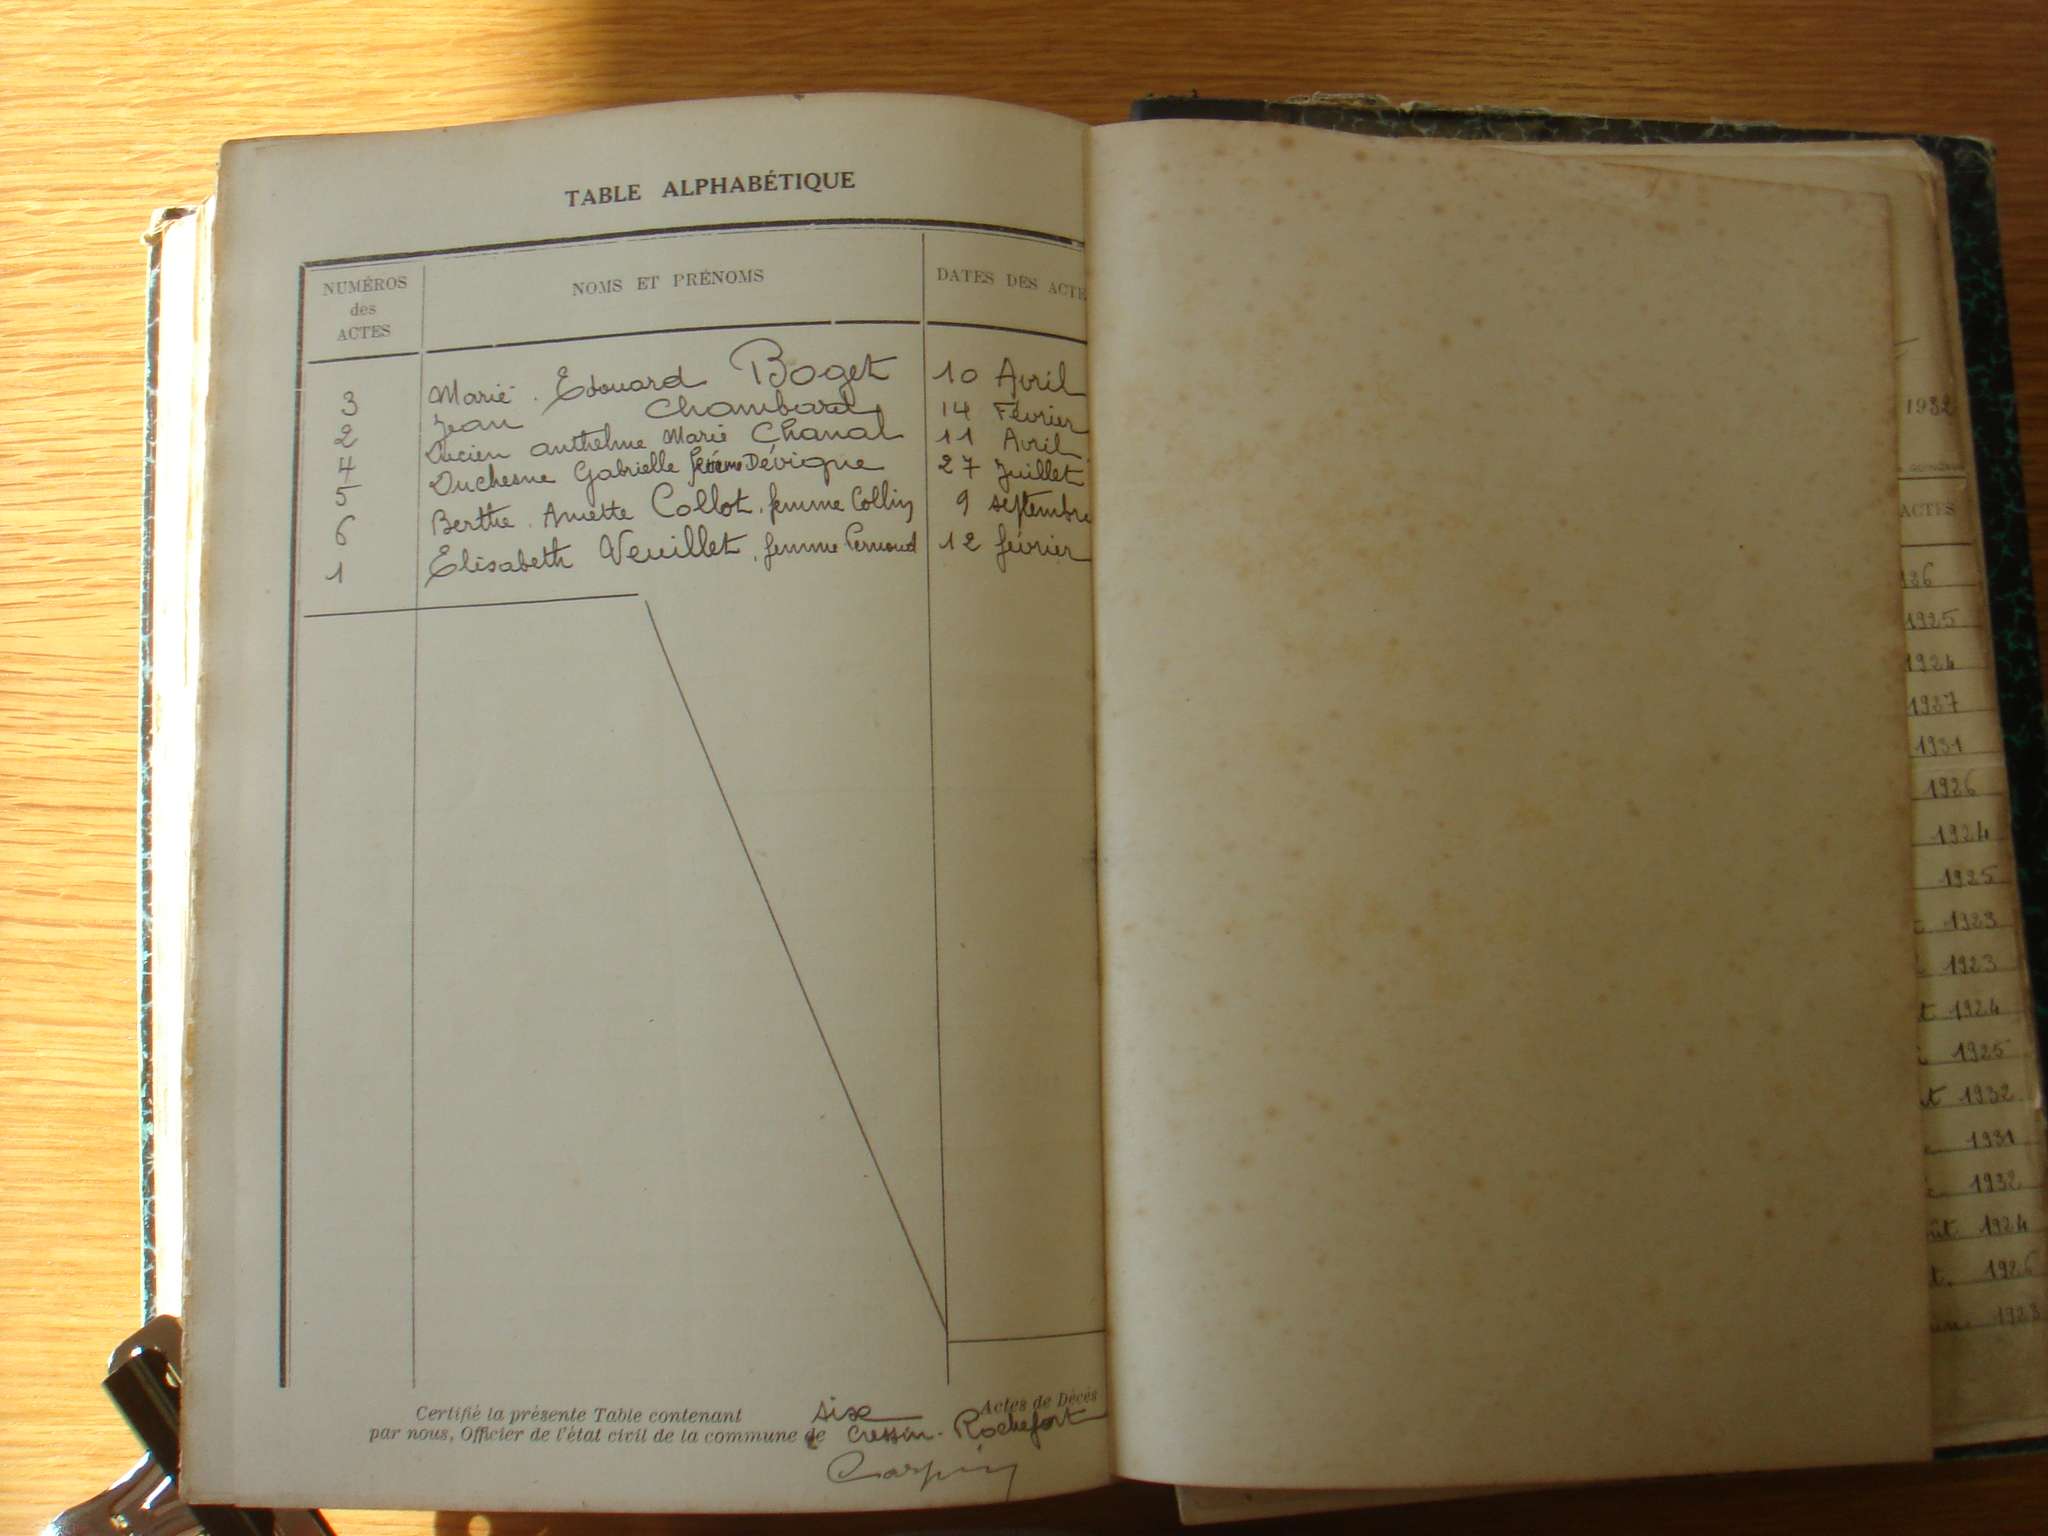 TABLE ALPHABÉTIQUE
NUMÉROS des ACTES NOMS ET PRÉNOMS DATES DES ACTE
3 Marie. Edouard Boget 10 Avril
2 Jean Chambard 14 Février
4 Lucien anthelme Marie Chanal 11 Avril
5 Duchesne Gabrielle femme Dévigne 27 Juillet
6 Berthe. Annette Collot. femme Collin 9 septembre
1 Elisabeth Veuillet, femme Pernoud 12 février
Certifié la présente Table contenant sixe Actes de Décès
par nous, Officier de l'état civil de la commune de Cressin-Rochefort
1932
ACTES
1925
1924
1927
1931
1926
1924
1925
1923
1923
t 1924
1925
1932
1931
1932
ût. 1924
t. 1926
1923